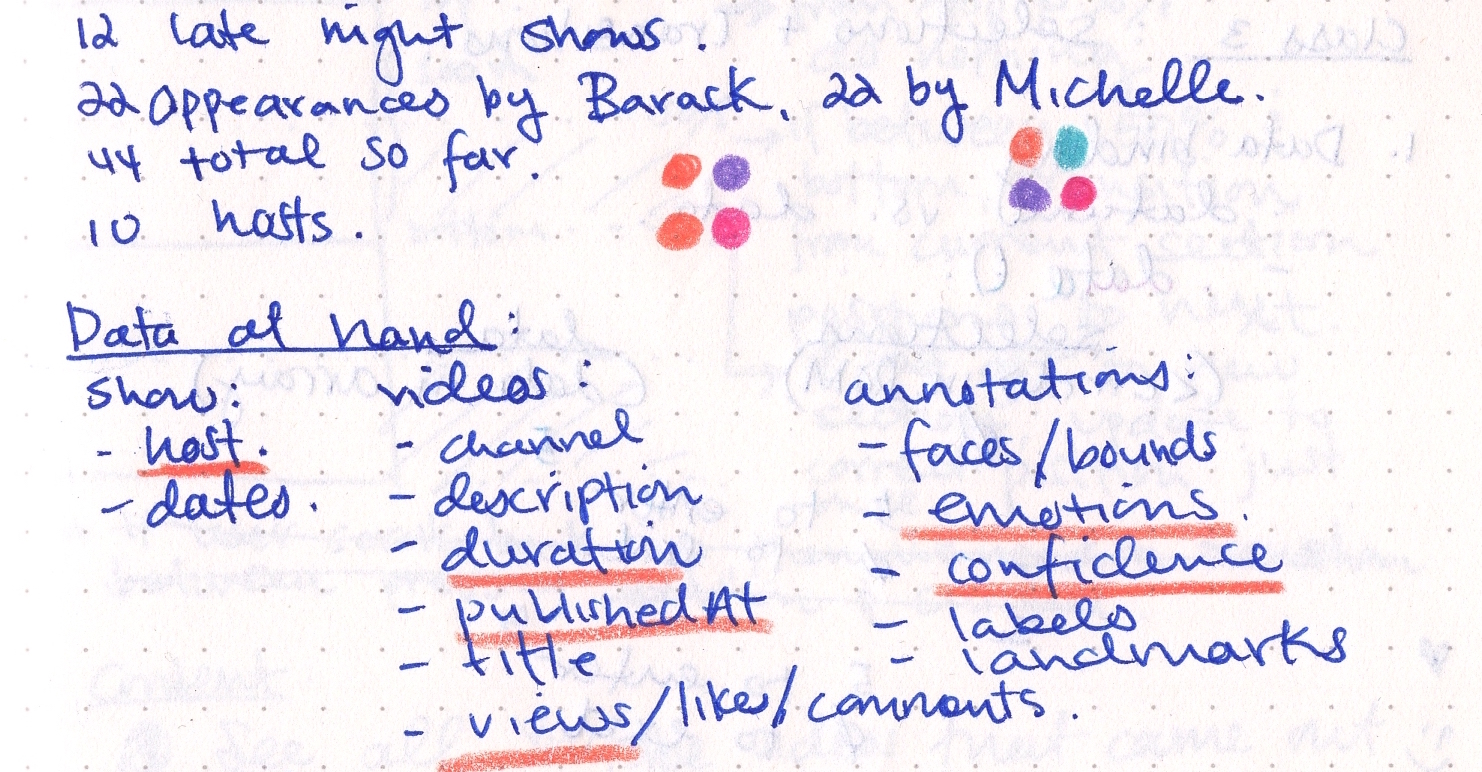 12 late night shows.
22 appearances by Barack, 22 by Michelle.
44 total so far.
10 hosts.
Data at hand:
show:
- host.
- dates.
videos:
- channel
- description
- duration
- publishedAt
- title
- views/likes/comments.
annotations:
- faces/bounds
- emotions.
- confidence
- labels
- landmarks